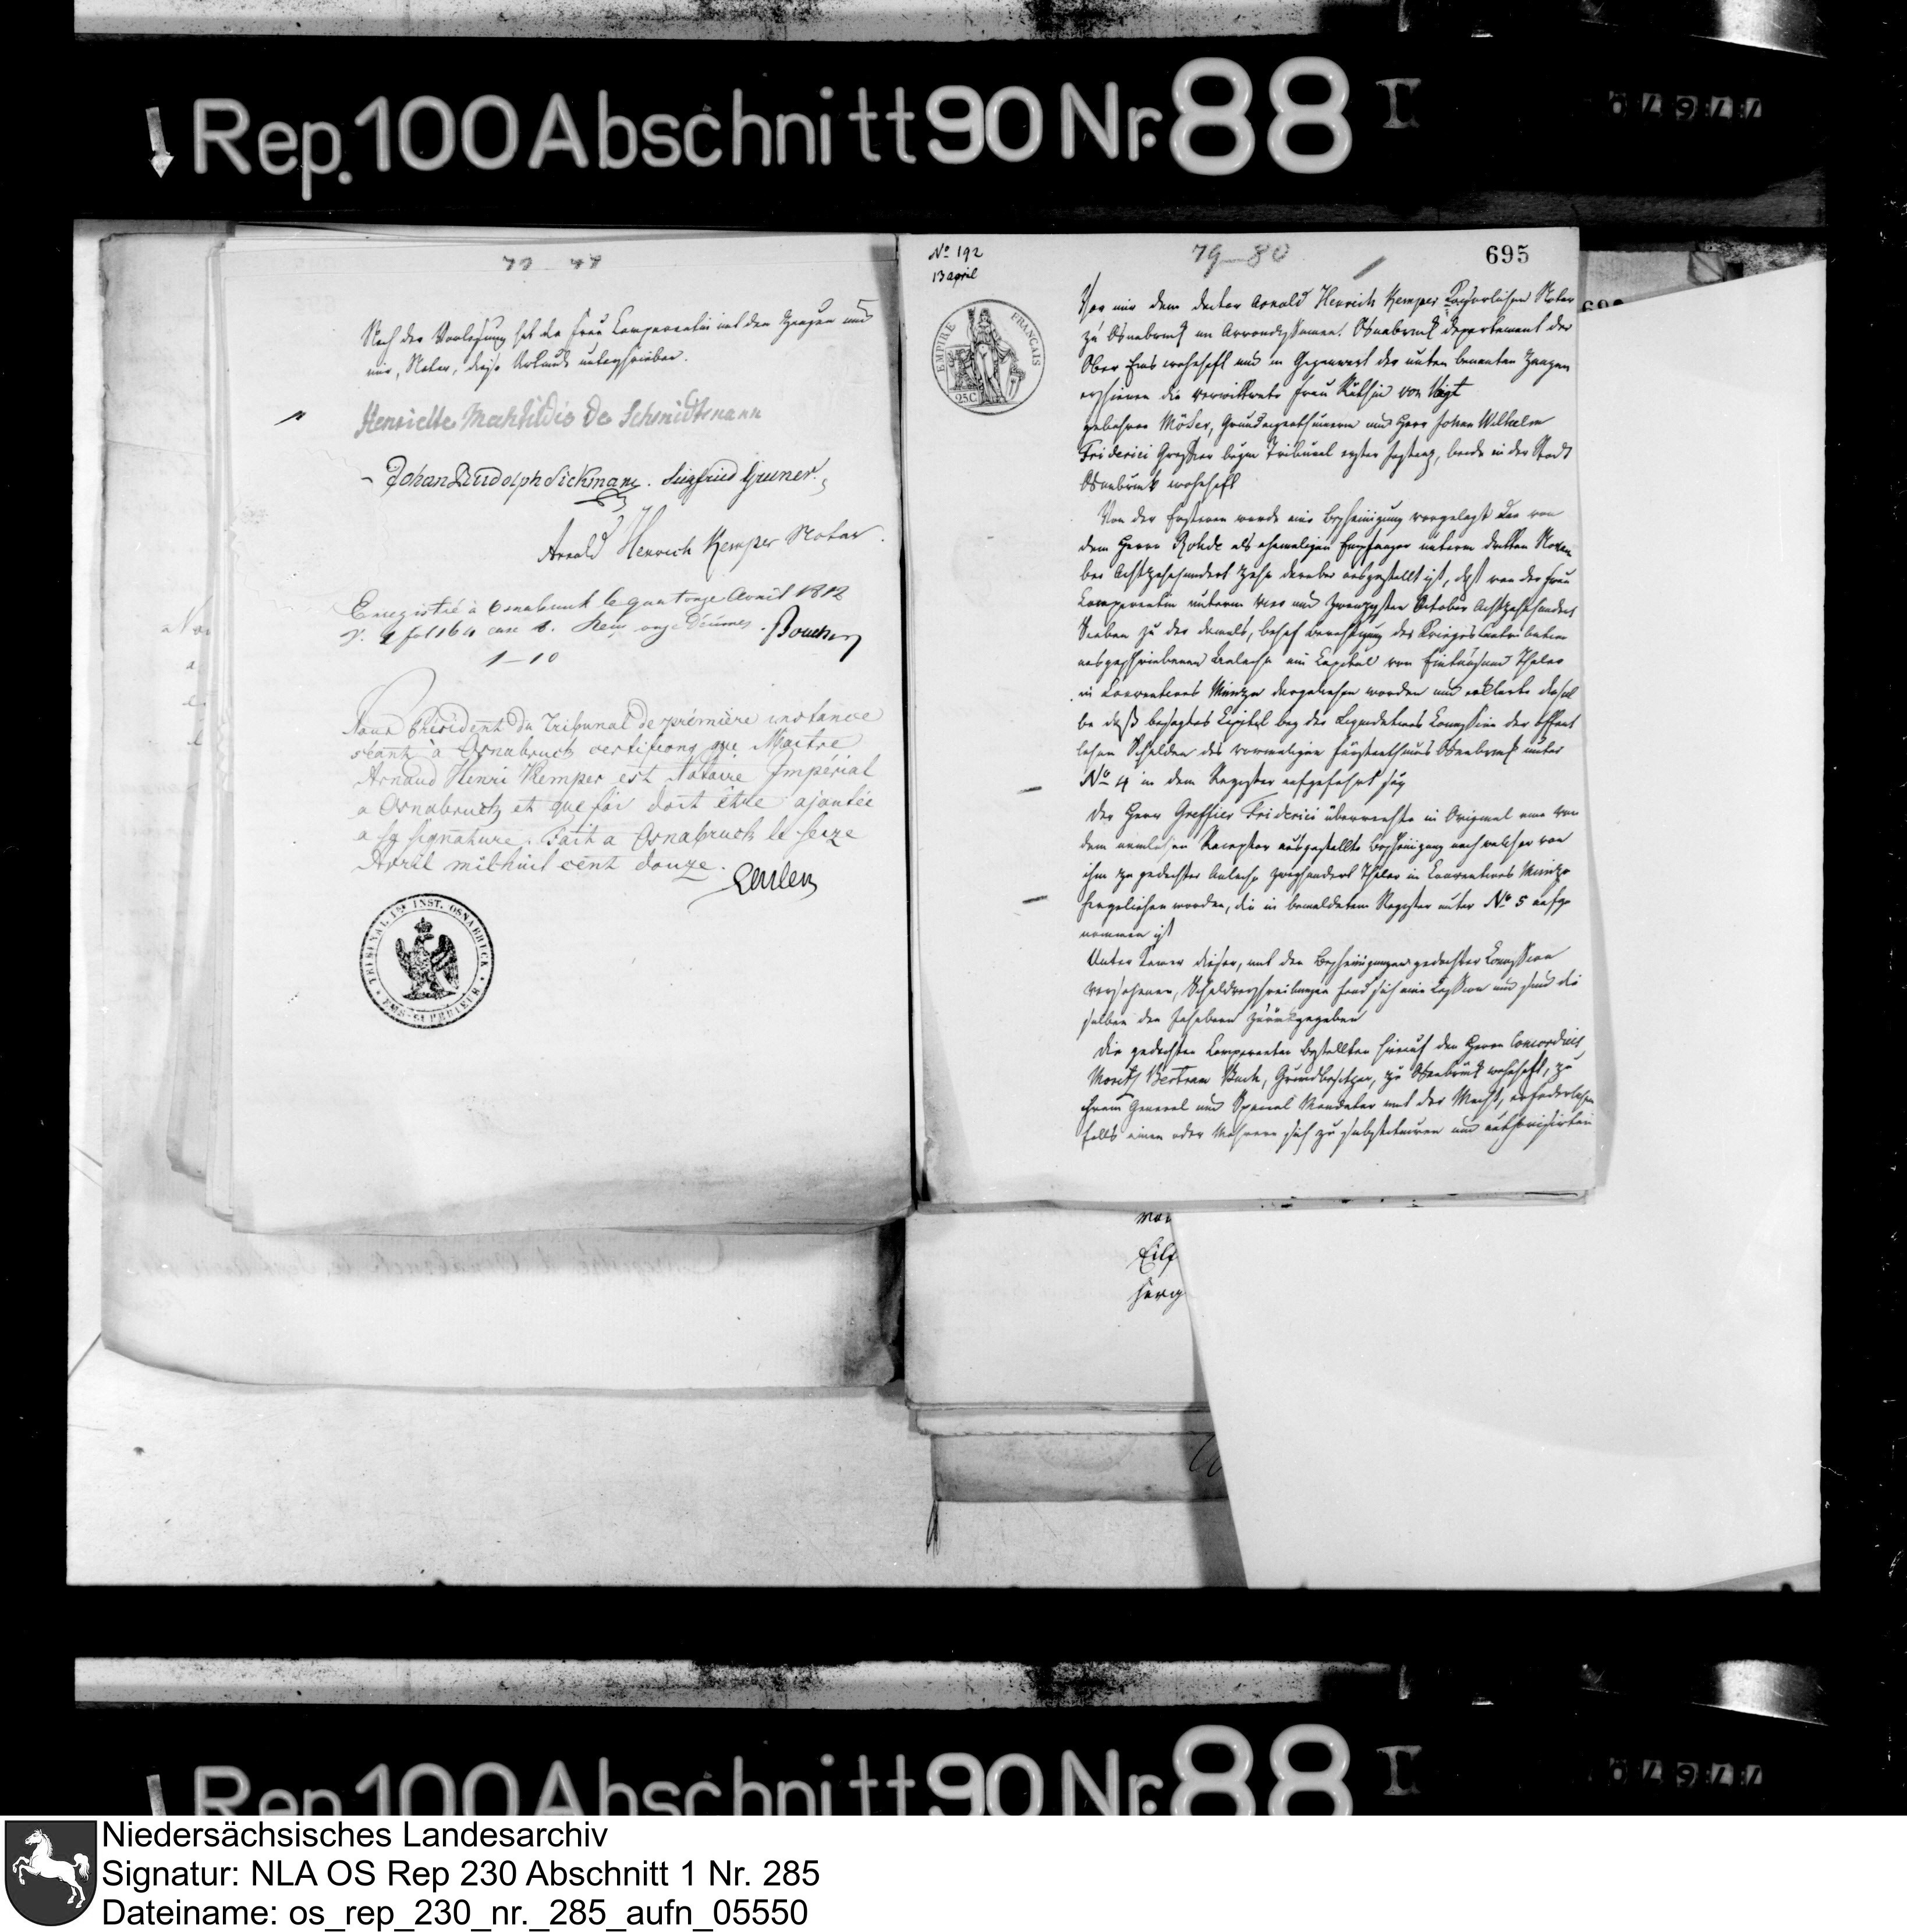 Rep. 100 Abschnitt 90 Nr. 88 I
77 78
Nach der Vorlesung hat die Frau Comparentin mit den Zeugen und
mir, Notar, diese Urkunde unterschrieben.
Henriette Mathildis de Schmidtmann
Johan Rudolph Sickmann. Siegfried Gruner.
Arnold Henrich Kemper Notar.
Enregistré à Osnabruck le quatorze Avril 1812
fol 164 case 8. Reçu onze Décimes. Boucher
1-10
Nous Président du Tribunal de première instance
séant à Osnabruck certifions que Maitre
Arnaud Henri Kemper est Notaire Impérial
a Osnabruck et que foi doit être ajoutée
a sa signature. Fait a Osnabruck le seize
Avril mil huit cent douze.
TRIBUNAL INST. OSNABRUCK
No 192
13 april
79-80
695
EMPIRE FRANÇAIS
25C
Vor mir dem doctor Arnold Henrich Kemper Kayserlichen Notar
zu Osnabruck im Arrondissement Osnabruck departement der
Ober Ems wohnhaft und in Gegenwart der unten benanten Zeugen
erschienen die verwittwete Frau Räthin von Voigt
gebohrne Möser, Grundeigenthümerin und Herr Johan Wilhelm
Friderici Greffier beym Tribunal erster Instanz, beide in der Stadt
Osnabruck wohnhaft
Von der Ersteren wurde eine Bescheinigung vorgelegt die von
dem Herrn Rohde als ehemaligen Empfänger unterm dritten Novem
ber Achtzehnhundert zehn darüber ausgestellt ist, daß von der Frau
Comparentin unterm vier und zwanzigsten October Achtzehnhundert
Sieben zu der damals, behuf der Kriegs Contribution
ausgeschriebenen Anleihe ein Capital von Eintausend Thaler
in Conventions Münze dargeliehen worden und erklärte dasel
be daß besagtes Capital bey der Liquidations Commission der öffent
lichen Schulden des vormaligen Fürstenthums Osnabruck unter
No 4 in dem Register aufgeführt sey
Der Herr Greffier Friderici überreichte in Original eine von
dem nemlichen Receptor ausgestellte Bescheinigung nach welcher von
ihm zu gedachter Anleihe zweyhundert Thaler in Conventions Münze
hergeliehen worden, die in bemeldetem Register unter No 5 aufge
nommen ist
Unter keiner dieser, mit den Bescheinigungen gedachter Commission
versehenen, Schuldverschreibungen fand sich eine Cession und sind die
selben den Inhabern zurückgegeben
Die gedachten Comparenten bestellten hierauf den Herrn
Moritz Bertram Buch, Grundbesitzer, zu Osnabrück wohnhaft, zu
ihrem General und Special Mandatar mit der Macht, erforderlichen
falls einen oder Mehrere sich zu substituiren und authorisirten
Eilf
Rep. 100 Abschnitt 90 Nr. 88 I
Niedersächsisches Landesarchiv
Signatur: NLA OS Rep 230 Abschnitt 1 Nr. 285
Dateiname: os_rep_230_nr._285_aufn_05550